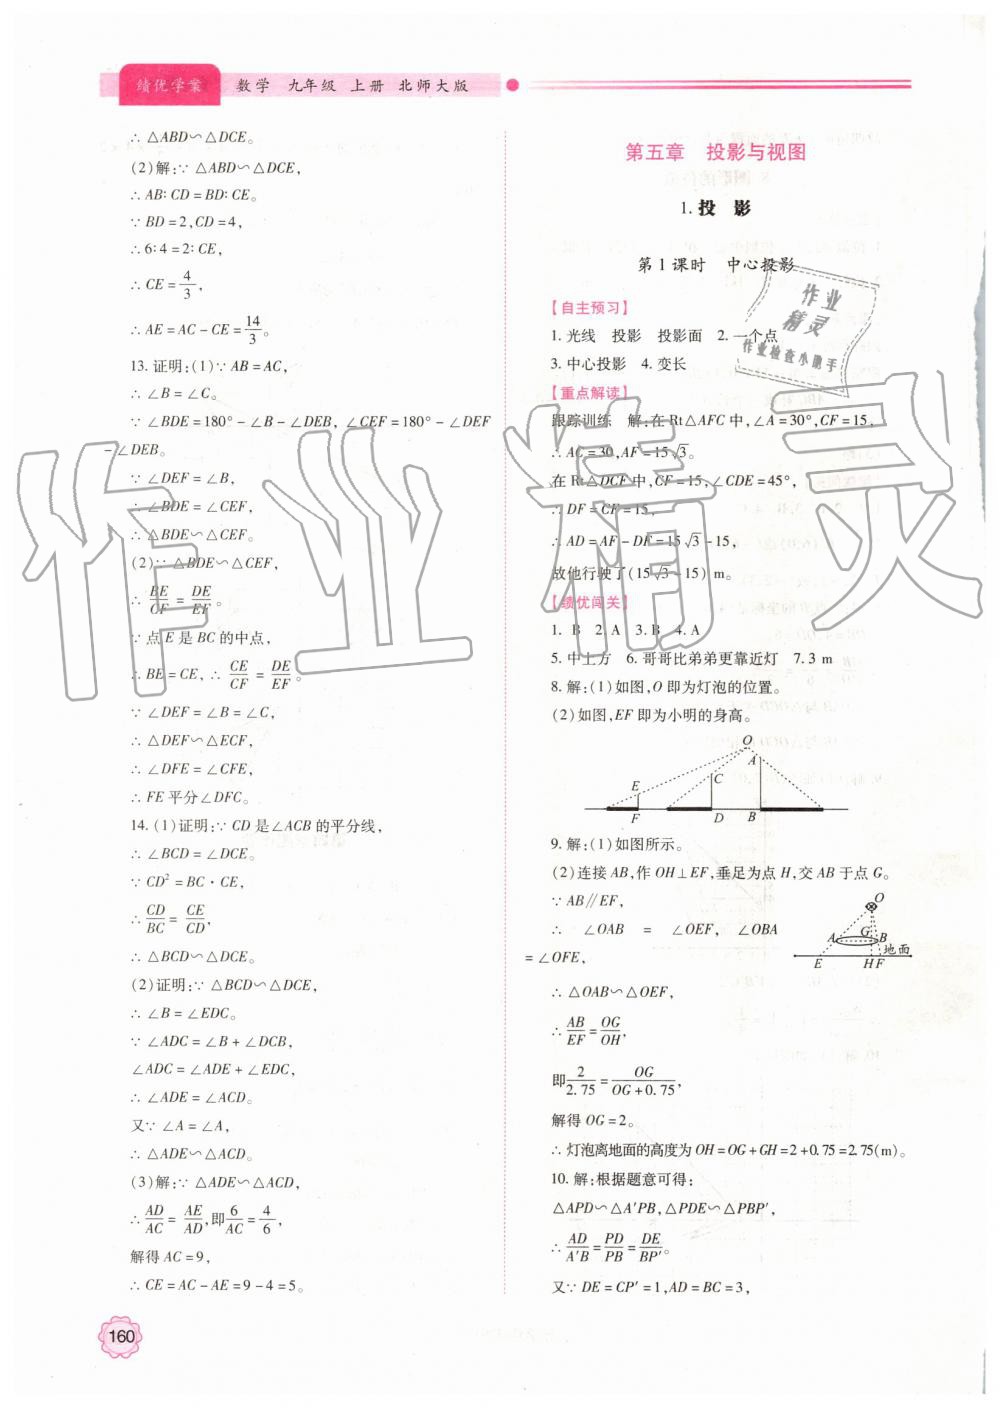 绩优学案 数学 九年级 上册 北师大版
∴ △ABD∽△DCE。
(2)解:∵ △ABD∽△DCE,
∴ AB∶CD=BD∶CE。
∵ BD=2,CD=4,
∴ 6∶4=2∶CE,
∴ CE=4/3,
∴ AE=AC-CE=14/3。
13. 证明:(1)∵ AB=AC,
∴ ∠B=∠C。
∵ ∠BDE=180°-∠B-∠DEB,∠CEF=180°-∠DEF
-∠DEB。
∵ ∠DEF=∠B,
∴ ∠BDE=∠CEF,
∴ △BDE∽△CEF。
(2)∵ △BDE∽△CEF,
∴ BE/CF=DE/EF。
∵ 点 E 是 BC 的中点,
∴ BE=CE,∴ CE/CF=DE/EF。
∵ ∠DEF=∠B=∠C,
∴ △DEF∽△ECF,
∴ ∠DFE=∠CFE,
∴ FE 平分∠DFC。
14. (1)证明:∵ CD 是∠ACB 的平分线,
∴ ∠BCD=∠DCE。
∵ CD²=BC·CE,
∴ CD/BC=CE/CD,
∴ △BCD∽△DCE。
(2)证明:∵ △BCD∽△DCE,
∴ ∠B=∠EDC。
∵ ∠ADC=∠B+∠DCB,
∠ADC=∠ADE+∠EDC,
∴ ∠ADE=∠ACD。
又∵ ∠A=∠A,
∴ △ADE∽△ACD。
(3)解:∵ △ADE∽△ACD,
∴ AD/AC=AE/AD,即6/AC=4/6,
解得 AC=9,
∴ CE=AC-AE=9-4=5。
160
第五章 投影与视图
1. 投 影
第 1 课时 中心投影
【自主预习】
1. 光线 投影 投影面 2. 一个点
3. 中心投影 4. 变长
【重点解读】
跟踪训练 解:在 Rt△AFC 中,∠A=30°,CF=15,
∴ AC=30,AF=15√3。
在 Rt△DCF 中,CF=15,∠CDE=45°,
∴ DF=CF=15,
∴ AD=AF-DF=15√3-15,
故他行驶了(15√3-15) m。
【绩优闯关】
1. B 2. A 3. B 4. A
5. 中上方 6. 哥哥比弟弟更靠近灯 7. 3 m
8. 解:(1)如图,O 即为灯泡的位置。
(2)如图,EF 即为小明的身高。
O
A
C
E
F D B
9. 解:(1)如图所示。
(2)连接 AB,作 OH⊥EF,垂足为点 H,交 AB 于点 G。
∵ AB∥EF,
∴ ∠OAB = ∠OEF, ∠OBA
=∠OFE,
O
A G B
地面
E H F
∴ △OAB∽△OEF,
∴ AB/EF=OG/OH,
即2/2.75=OG/(OG+0.75),
解得 OG=2。
∴ 灯泡离地面的高度为 OH=OG+GH=2+0.75=2.75(m)。
10. 解:根据题意可得:
△APD∽△A′PB,△PDE∽△PBP′,
∴ AD/A′B=PD/PB=DE/BP′。
又∵ DE=CP′=1,AD=BC=3,
作业
精灵
作业检查小助手
作业精灵